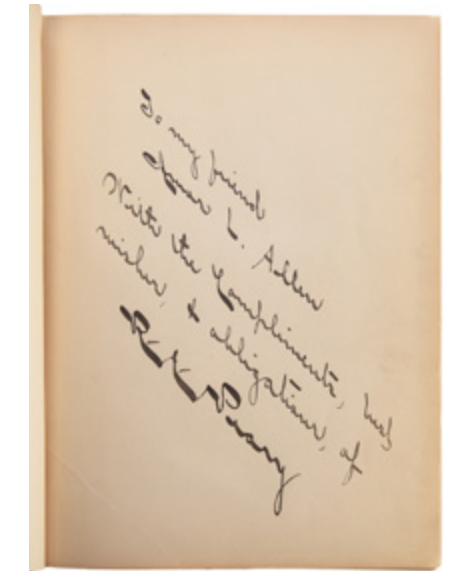 To my friend
L. Allen
With the Compliments, best
wishes, & obligations, of
R. E. Peary